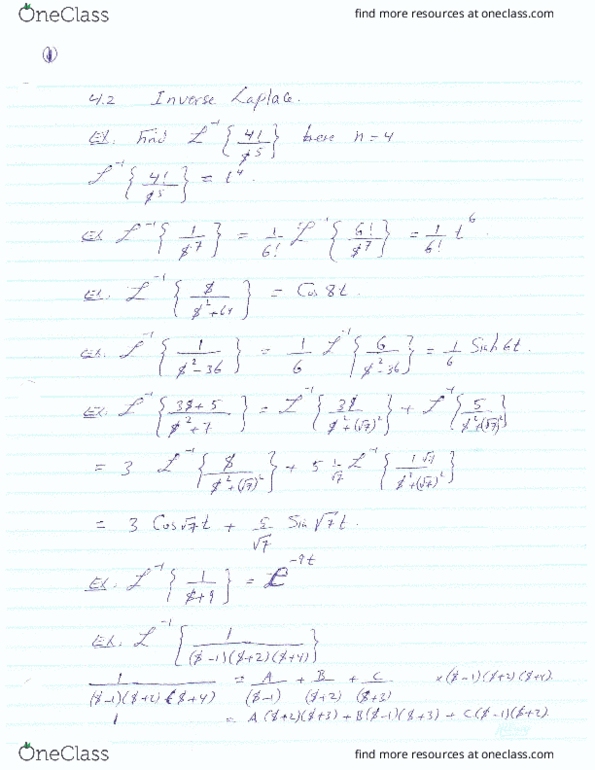 OneClass
find more resources at oneclass.com
①
4.2 Inverse Laplace.
Ex. Find L⁻¹ { 4! / s⁵ } here n = 4
L⁻¹ { 4! / s⁵ } = t⁴.
Ex. L⁻¹ { 1 / s⁷ } = 1/6! L⁻¹ { 6! / s⁷ } = 1/6! t⁶.
Ex. L⁻¹ { s / s²+64 } = Cos 8t.
Ex. L⁻¹ { 1 / s²-36 } = 1/6 L⁻¹ { 6 / s²-36 } = 1/6 Sinh 6t.
Ex. L⁻¹ { 3s+5 / s²+7 } = L⁻¹ { 3s / s²+(√7)² } + L⁻¹ { 5 / s²+(√7)² }
= 3 L⁻¹ { s / s²+(√7)² } + 5 1/√7 L⁻¹ { 1 √7 / s²+(√7)² }
= 3 Cos√7t + 5/√7 Sin√7t.
Ex. L⁻¹ { 1 / s+9 } = e⁻⁹ᵗ
Ex. L⁻¹ { 1 / (s-1)(s+2)(s+4) }
1 / (s-1)(s+2)(s+4) = A / (s-1) + B / (s+2) + C / (s+3) ×(s-1)(s+2)(s+4).
1 = A(s+2)(s+3) + B(s-1)(s+3) + C(s-1)(s+2).
OneClass
find more resources at oneclass.com